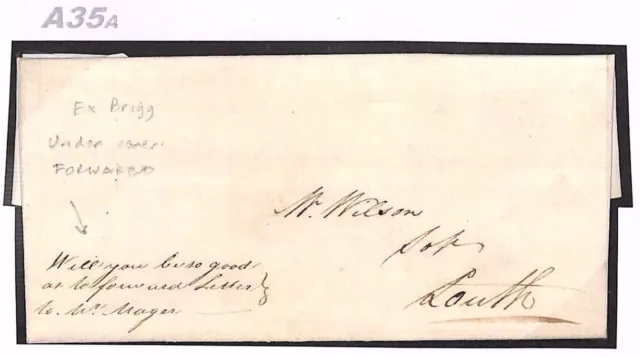 A35A
Ex Brigg
Under cover
FORWARDED
Mr. Wilson
Solr
Louth
Will you be so good
as to forward Letter
to Mr. Mager